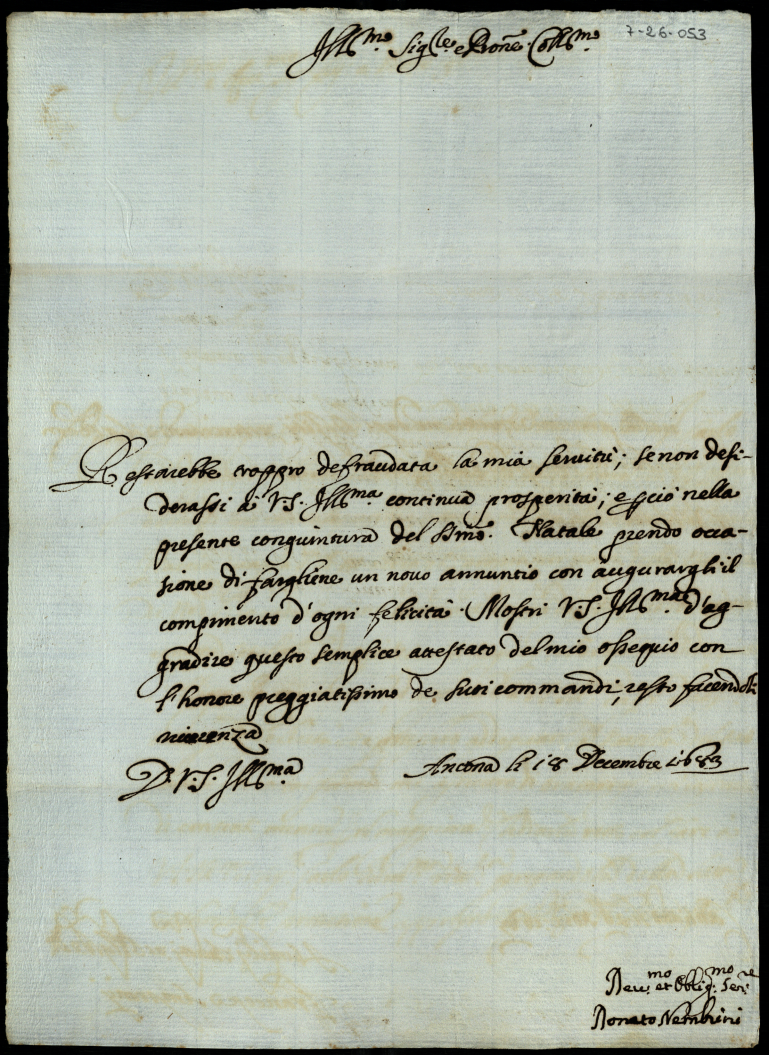 7-26-053
Ill.mo Sig.re e Prōne Coll.mo
Restarebbe troppo defraudata la mia servitù; se non desi-
derassi à V.S. Ill.ma continua prosperità; e p ciò nella
presente congiuntura del SSmo. Natale prendo occa-
sione di fargliene un novo annuntio con augurargli il
compimento d'ogni felicità. Mostri V.S. Ill.ma d'ag-
gradire questo semplice attestato del mio ossequio con
l'honore preggiatissimo de suoi commandi, resto facendoli
riverenza
D. V.S. Ill.ma
Ancona li 18 Decembre 1683
Dev.mo et Oblig.mo Ser.re
Donato Nembrini